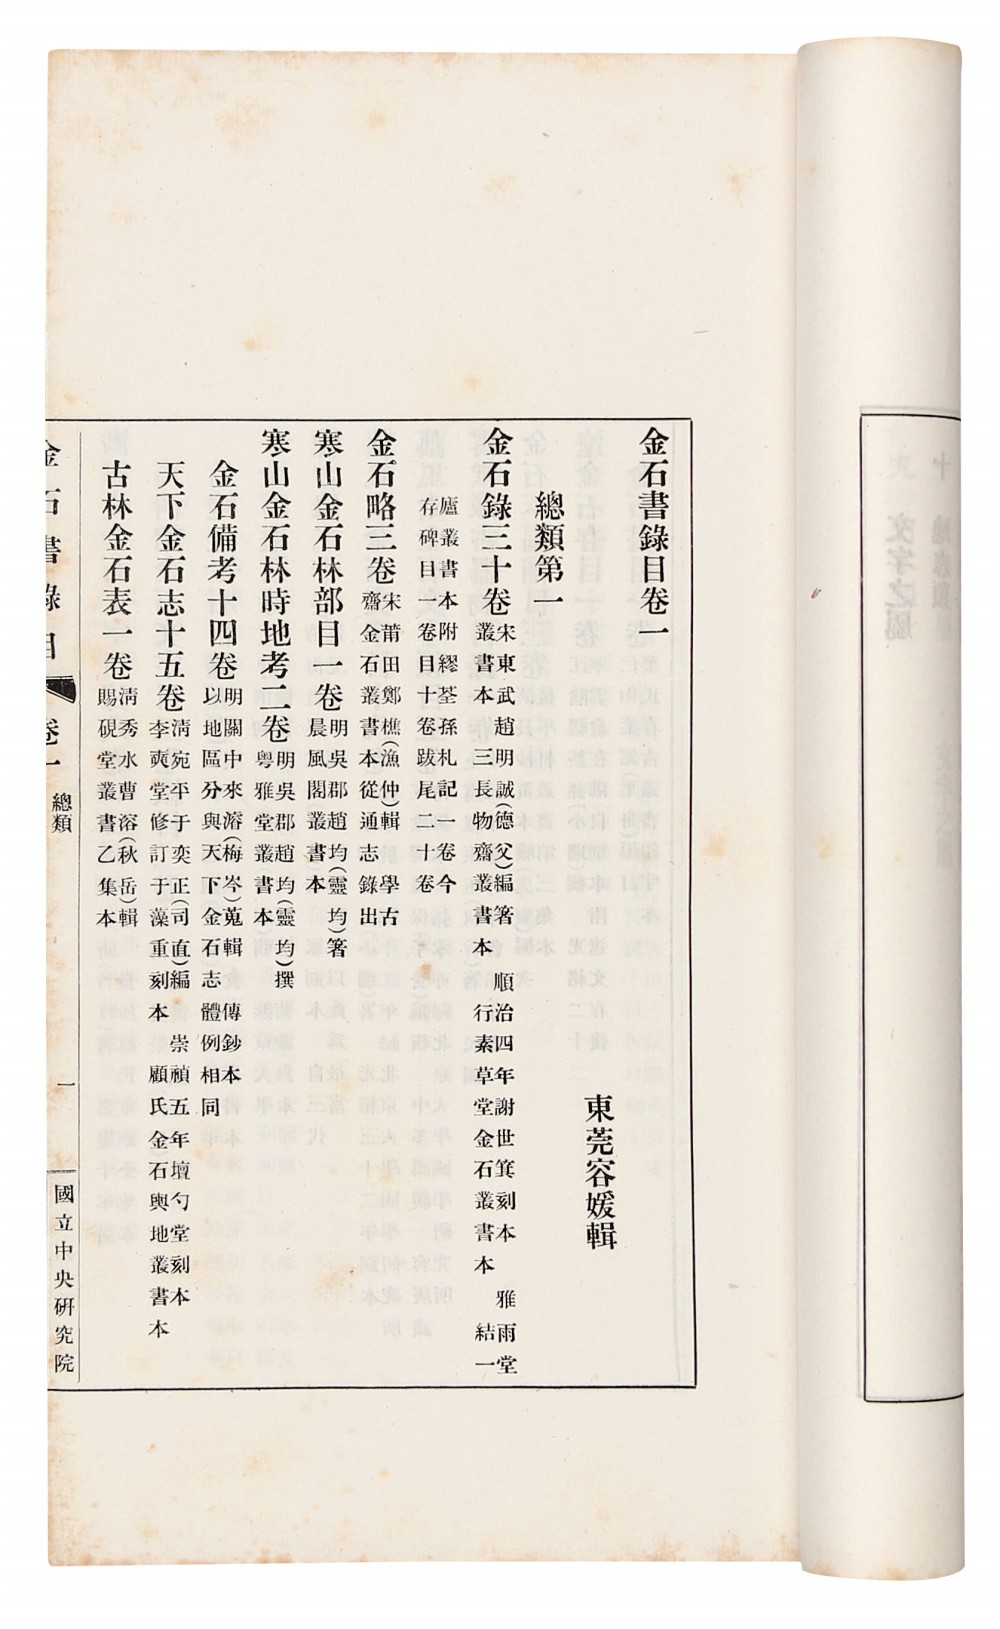 金石書錄目卷一
東莞容媛輯
總類第一
金石錄三十卷
宋東武趙明誠(德父)編箸 順治四年謝世箕刻本 雅雨堂
叢書本 三長物齋叢書本 行素草堂金石叢書本 結一
廬叢書本附繆荃孫札記一卷今
存碑目一卷目十卷跋尾二十卷
金石略三卷
宋莆田鄭樵(漁仲)輯 學古
齋金石叢書本從通志錄出
寒山金石林部目一卷
明吳郡趙均(靈均)箸
晨風閣叢書本
寒山金石林時地考二卷
明吳郡趙均(靈均)撰
粵雅堂叢書本
金石備考十四卷
明關中來濬(梅岑)蒐輯 傳鈔本
以地區分與天下金石志體例相同
天下金石志十五卷
清宛平于奕正(司直)編 崇禎五年壇勺堂刻本
李奭堂修訂于藻重刻本 顧氏金石輿地叢書本
古林金石表一卷
清秀水曹溶(秋岳)輯
賜硯堂叢書乙集本
金石書錄目 卷一 總類 一 國立中央研究院